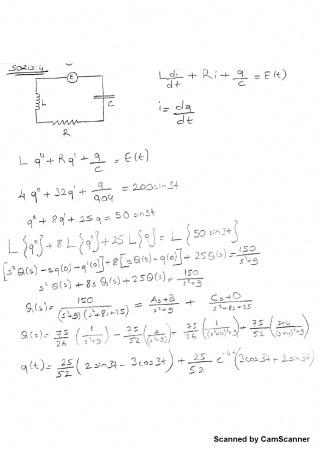 soru:4
L di/dt + Ri + q/c = E(t)
E
L
C
R
i = dq/dt
L q'' + R q' + q/c = E(t)
4 q'' + 32 q' + q/0.04 = 200 sin3t
q'' + 8q' + 25 q = 50 sin3t
L{q''} + 8 L{q'} + 25 L{q} = L{50 sin3t}
[s² Q(s) - sq(0) - q'(0)] + 8[sQ(s) - q(0)] + 25Q(s) = 150/s²+9
s² Q(s) + 8s Q(s) + 25Q(s) = 150/s²+9
Q(s) = 150/(s²+9)(s²+8s+25) = As+B/s²+9 + Cs+D/s²+8s+25
Q(s) = 75/26 (1/s²+9) - 75/52 (s/s²+9) + 75/26 (1/(s+4)²+9) + 75/52 (s+4/(s+4)²+9)
q(t) = 25/52 (2 sin3t - 3cos3t) + 25/52 e^-4t (3cos3t + 2sin3t)
Scanned by CamScanner